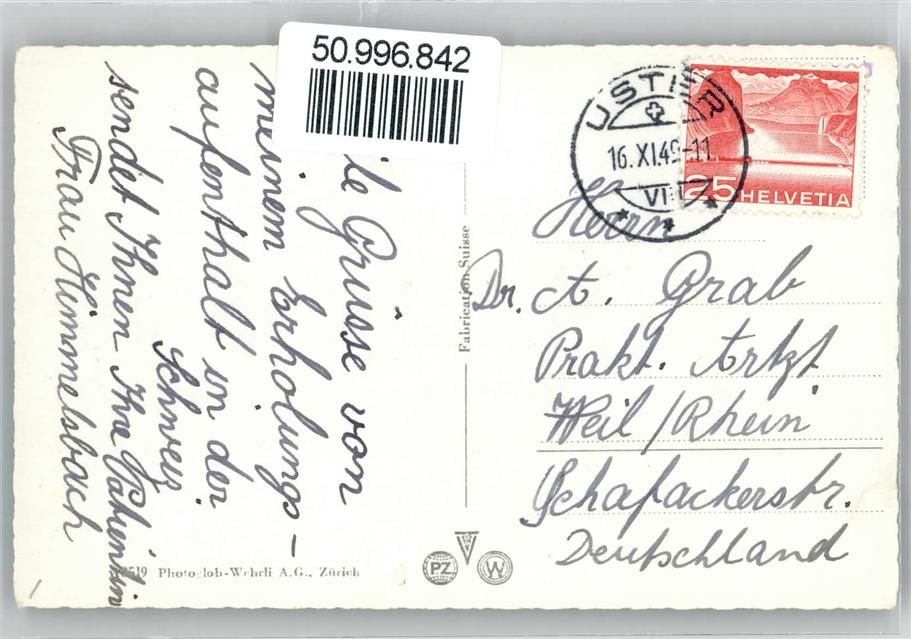 50.996.842
le Grüsse von
meinem Erholungs-
aufenthalt in der
Schweiz
sendet Ihnen Ihre Patientin
Frau Himmelsbach
Fabrication Suisse
519 Photoglob-Wehrli A.G., Zürich
PZ W
USTER
16.XI.49-11
VIII
25 HELVETIA
Herrn
Dr. A. Grab
Prakt. Artzt
Weil/Rhein
Schafackerstr.
Deutschland